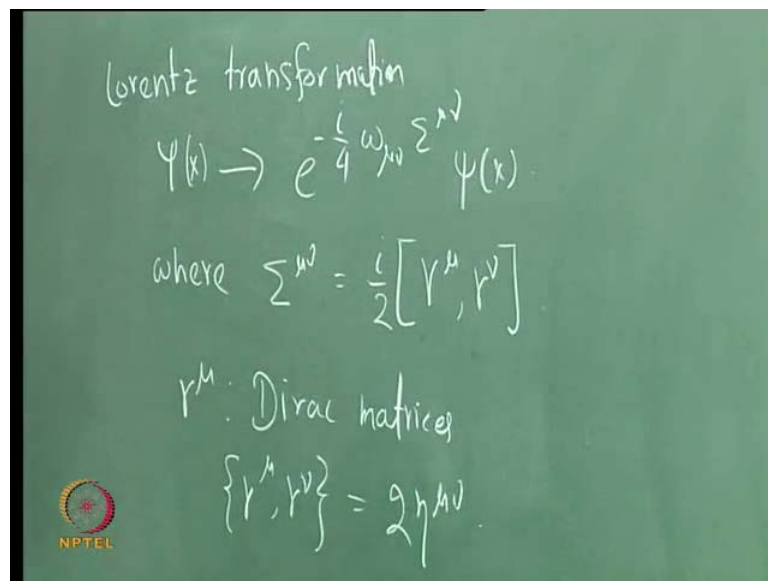 Lorentz transformation
ψ(x) → e^{-i/4 ω_{μν} Σ^{μν}} ψ(x).
where Σ^{μν} = i/2 [γ^μ, γ^ν].
γ^μ : Dirac matrices
{γ^μ, γ^ν} = 2η^{μν}.
NPTEL